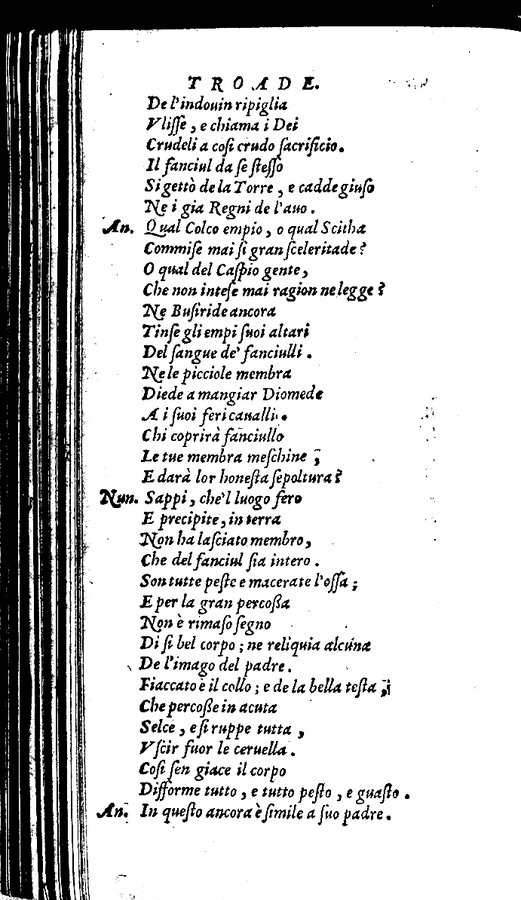 TROADE.
De l'indouin ripiglia
Vlisse, e chiama i Dei
Crudeli a cosi crudo sacrificio.
Il fanciul da se stesso
Si gettò de la Torre, e cadde giuso
Ne i gia Regni de l'auo.
An. Qual Colco empio, o qual Scitha
Commise mai si gran sceleritade?
O qual del Caspio gente,
Che non intese mai ragion ne legge?
Ne Busiride ancora
Tinse gli empi suoi altari
Del sangue de' fanciulli.
Ne le picciole membra
Diede a mangiar Diomede
A i suoi feri caualli.
Chi coprirà fanciullo
Le tue membra meschine;
E darà lor honesta sepoltura?
Nun. Sappi, che'l luogo fero
E precipite, in terra
Non ha lasciato membro,
Che del fanciul sia intero.
Son tutte peste e macerate l'ossa;
E per la gran percossa
Non è rimaso segno
Di si bel corpo; ne reliquia alcuna
De l'imago del padre.
Fiaccato è il collo; e de la bella testa,
Che percosse in acuta
Selce, e si ruppe tutta,
Vscir fuor le ceruella.
Cosi sen giace il corpo
Difforme tutto, e tutto pesto, e guasto.
An. In questo ancora è simile a suo padre.